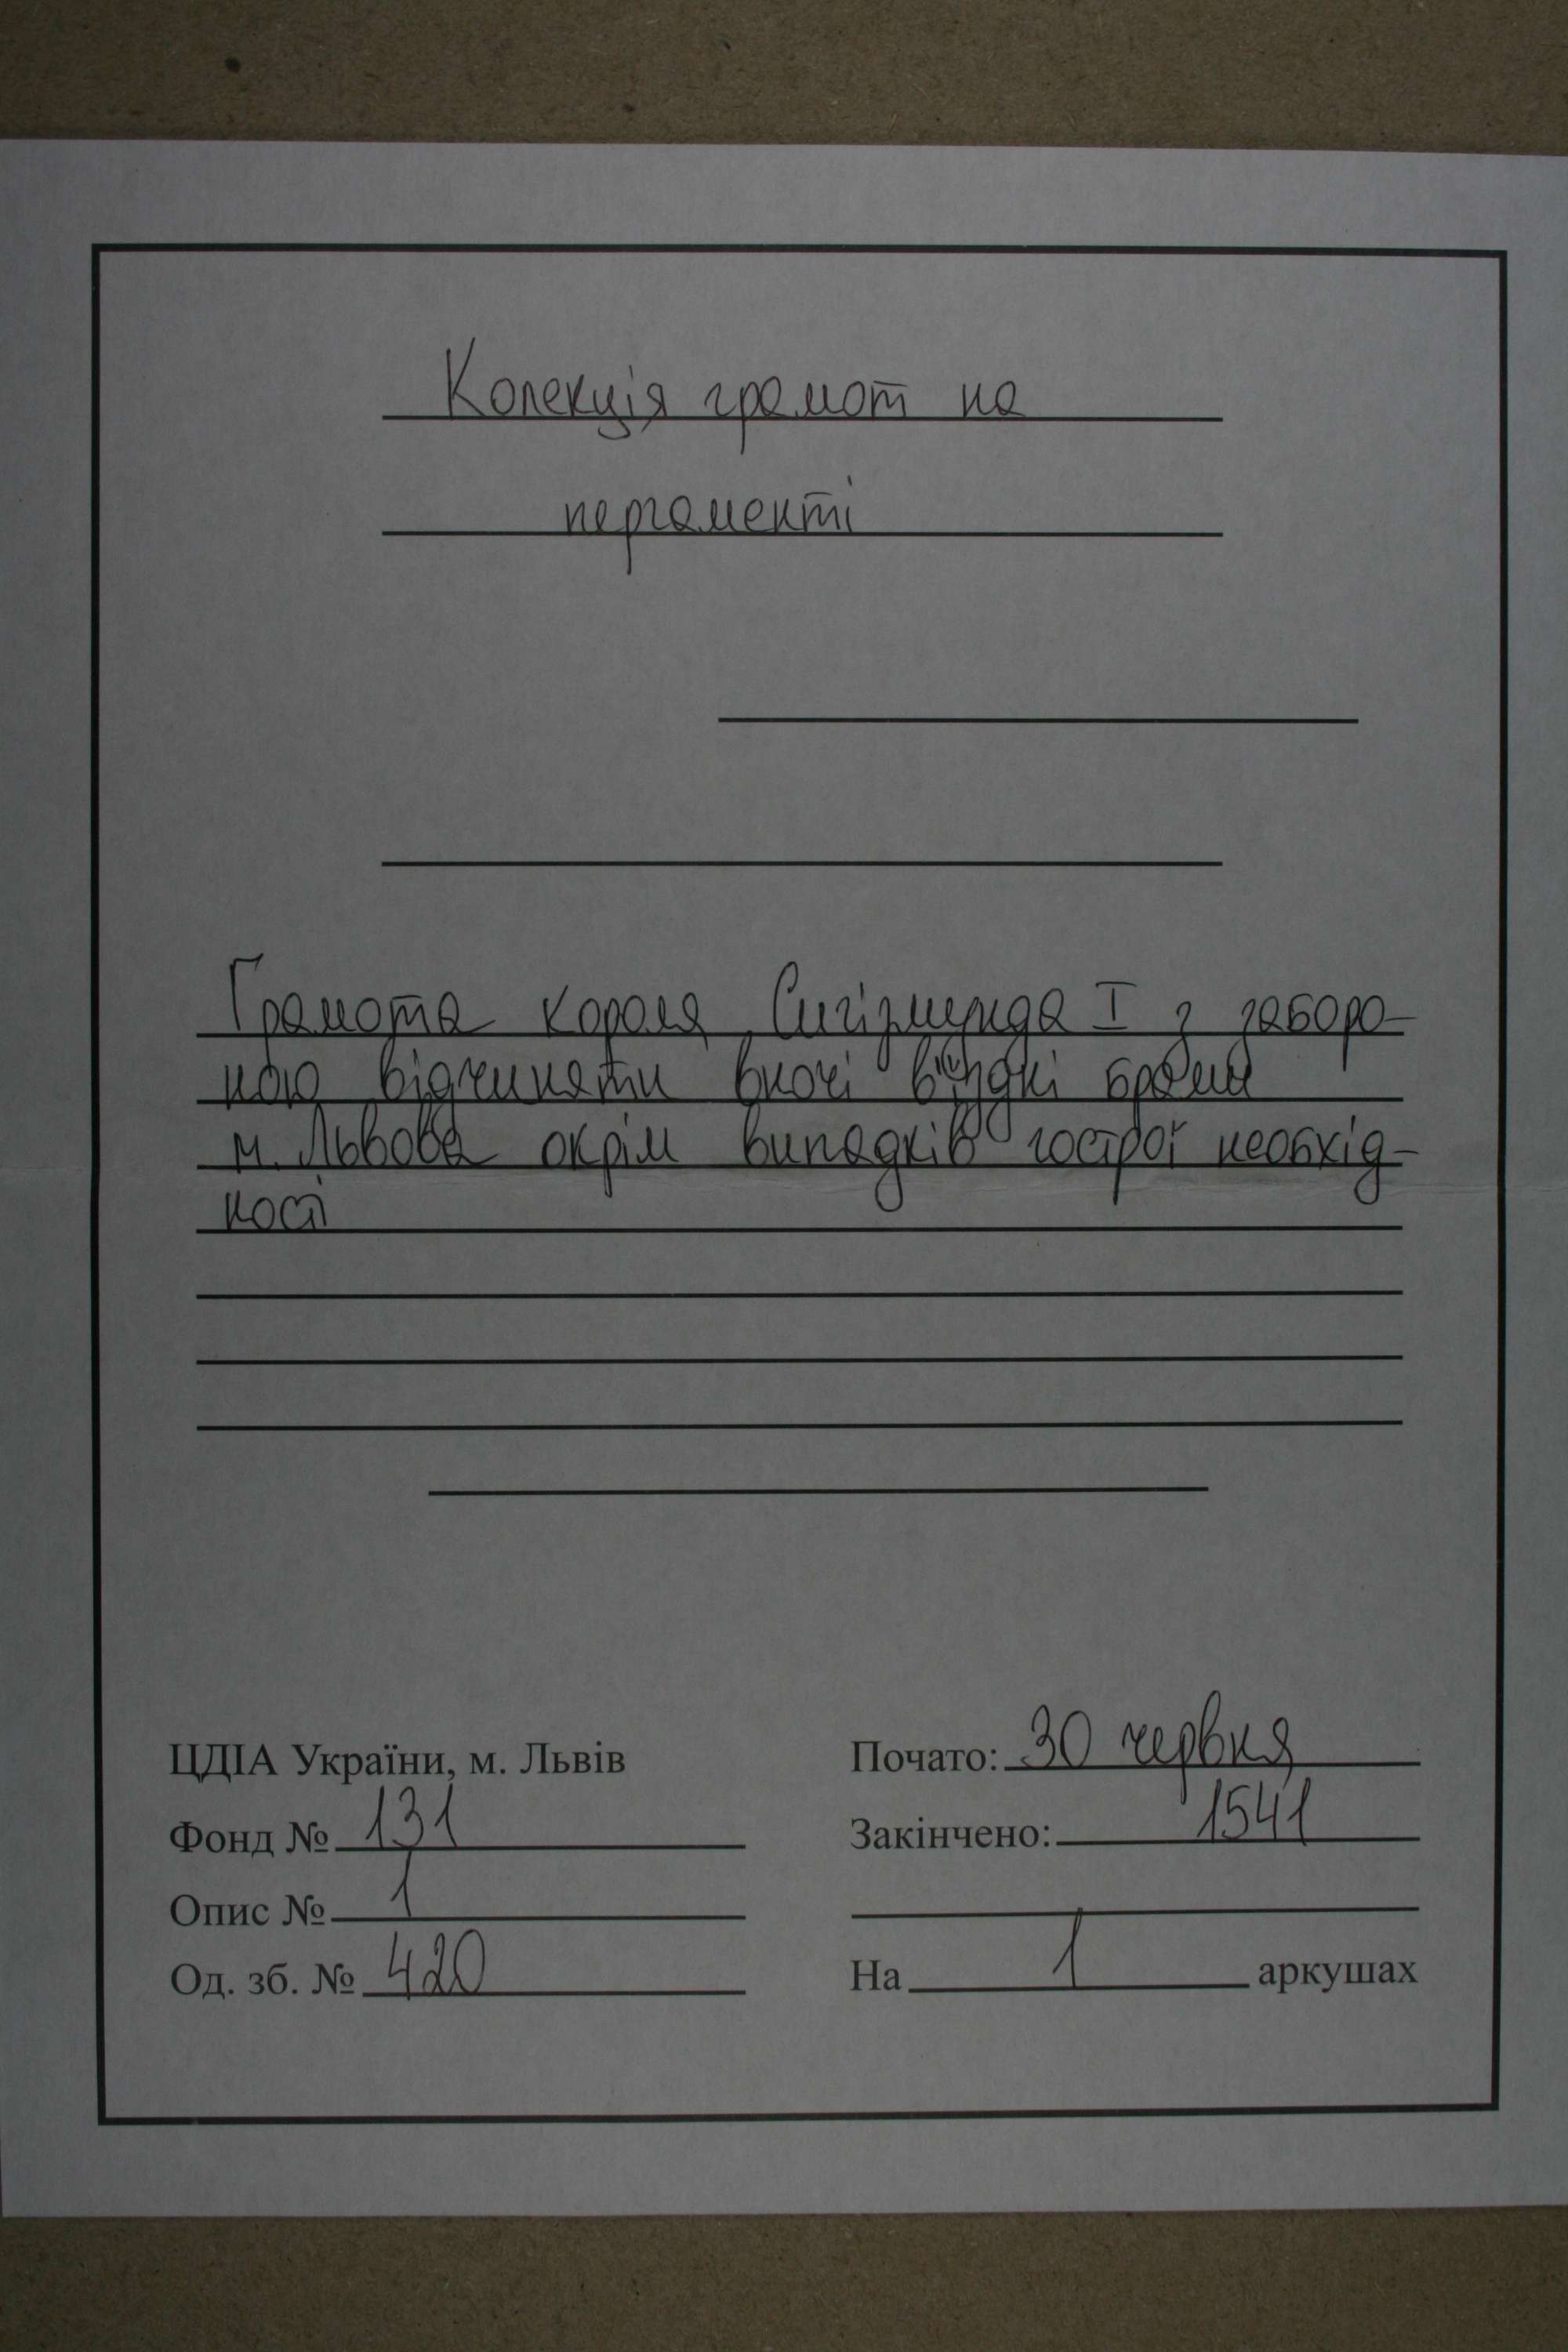 Колекція грамот на
пергаменті
Грамота короля Сигізмунда I з заборо-
ною відчиняти вночі в'їздні брами
м. Львова окрім випадків гострої необхід-
ності
ЦДІА України, м. Львів
Фонд № 131
Опис № 1
Од. зб. № 420
Почато: 30 червня
Закінчено: 1541
На 1 аркушах